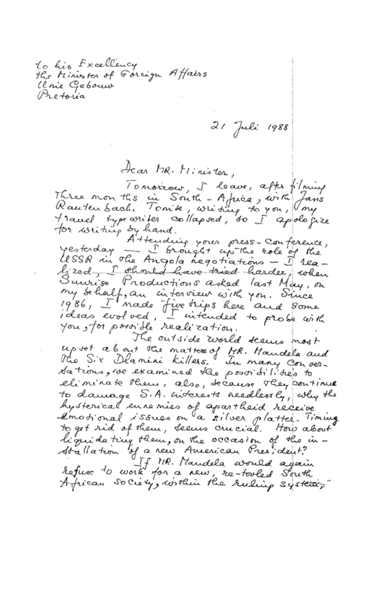 to his Excellency
the Minister of Foreign Affairs
Unie Gebouw
Pretoria
21 Juli 1988
Dear MR. Minister,
Tomorrow, I leave, after filming
Three months in South-Africa, with Jans
Rautenbach. Tonite, writing to you, my
travel typewriter collapsed, so I apologize
for writing by hand.
Attending your press-conference,
yesterday — I brought up the role of the
USSR in the Angola negotiations — I rea-
lized, I should have tried harder, when
Sunrise Productions asked last May, on
my behalf, an interview with you. Since
1986, I made five trips here and some
ideas evolved, I intended to probe with
you, for possible realization.
The outside world seems most
upset about the matters of MR. Mandela and
the Six Dlamini Killers. In many conver-
sations, we examined the possibilities to
eliminate them, also, because they continue
to damage S.A. interests needlessly, why the
hysterical enemies of apartheid receive
emotional issues on a silver platter. Timing
to get rid of them, seems crucial. How about
liquidating them, on the occasion of the in-
stallation of a new American President?
If MR. Mandela would again
refuse to work for a new, re-tooled South
African society, within the ruling system